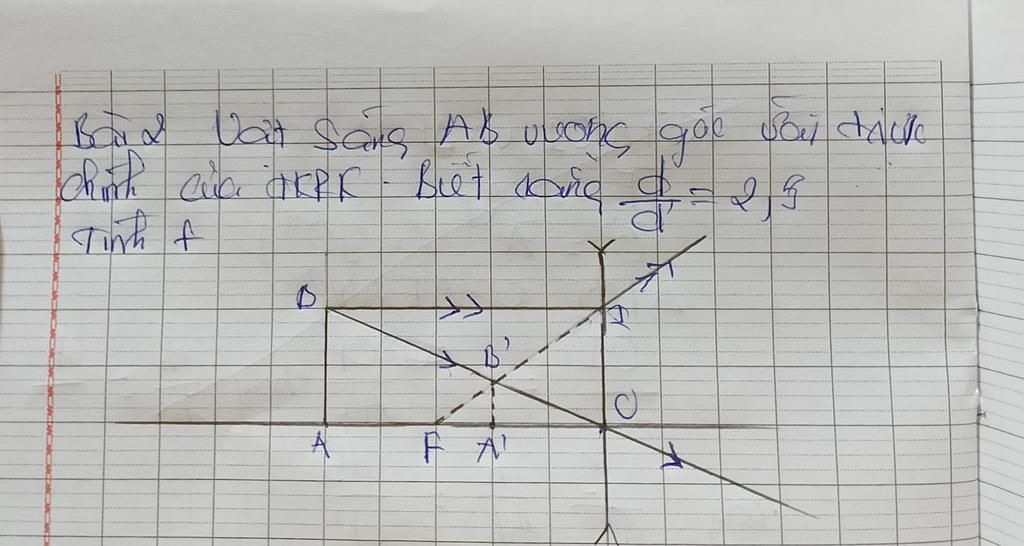 Bài 2 Vật Sáng AB vuông góc với trục
chính của TKPK. Biết rằng d/d' = 2,5
Tính f
B
I
B'
O
A
F
A'